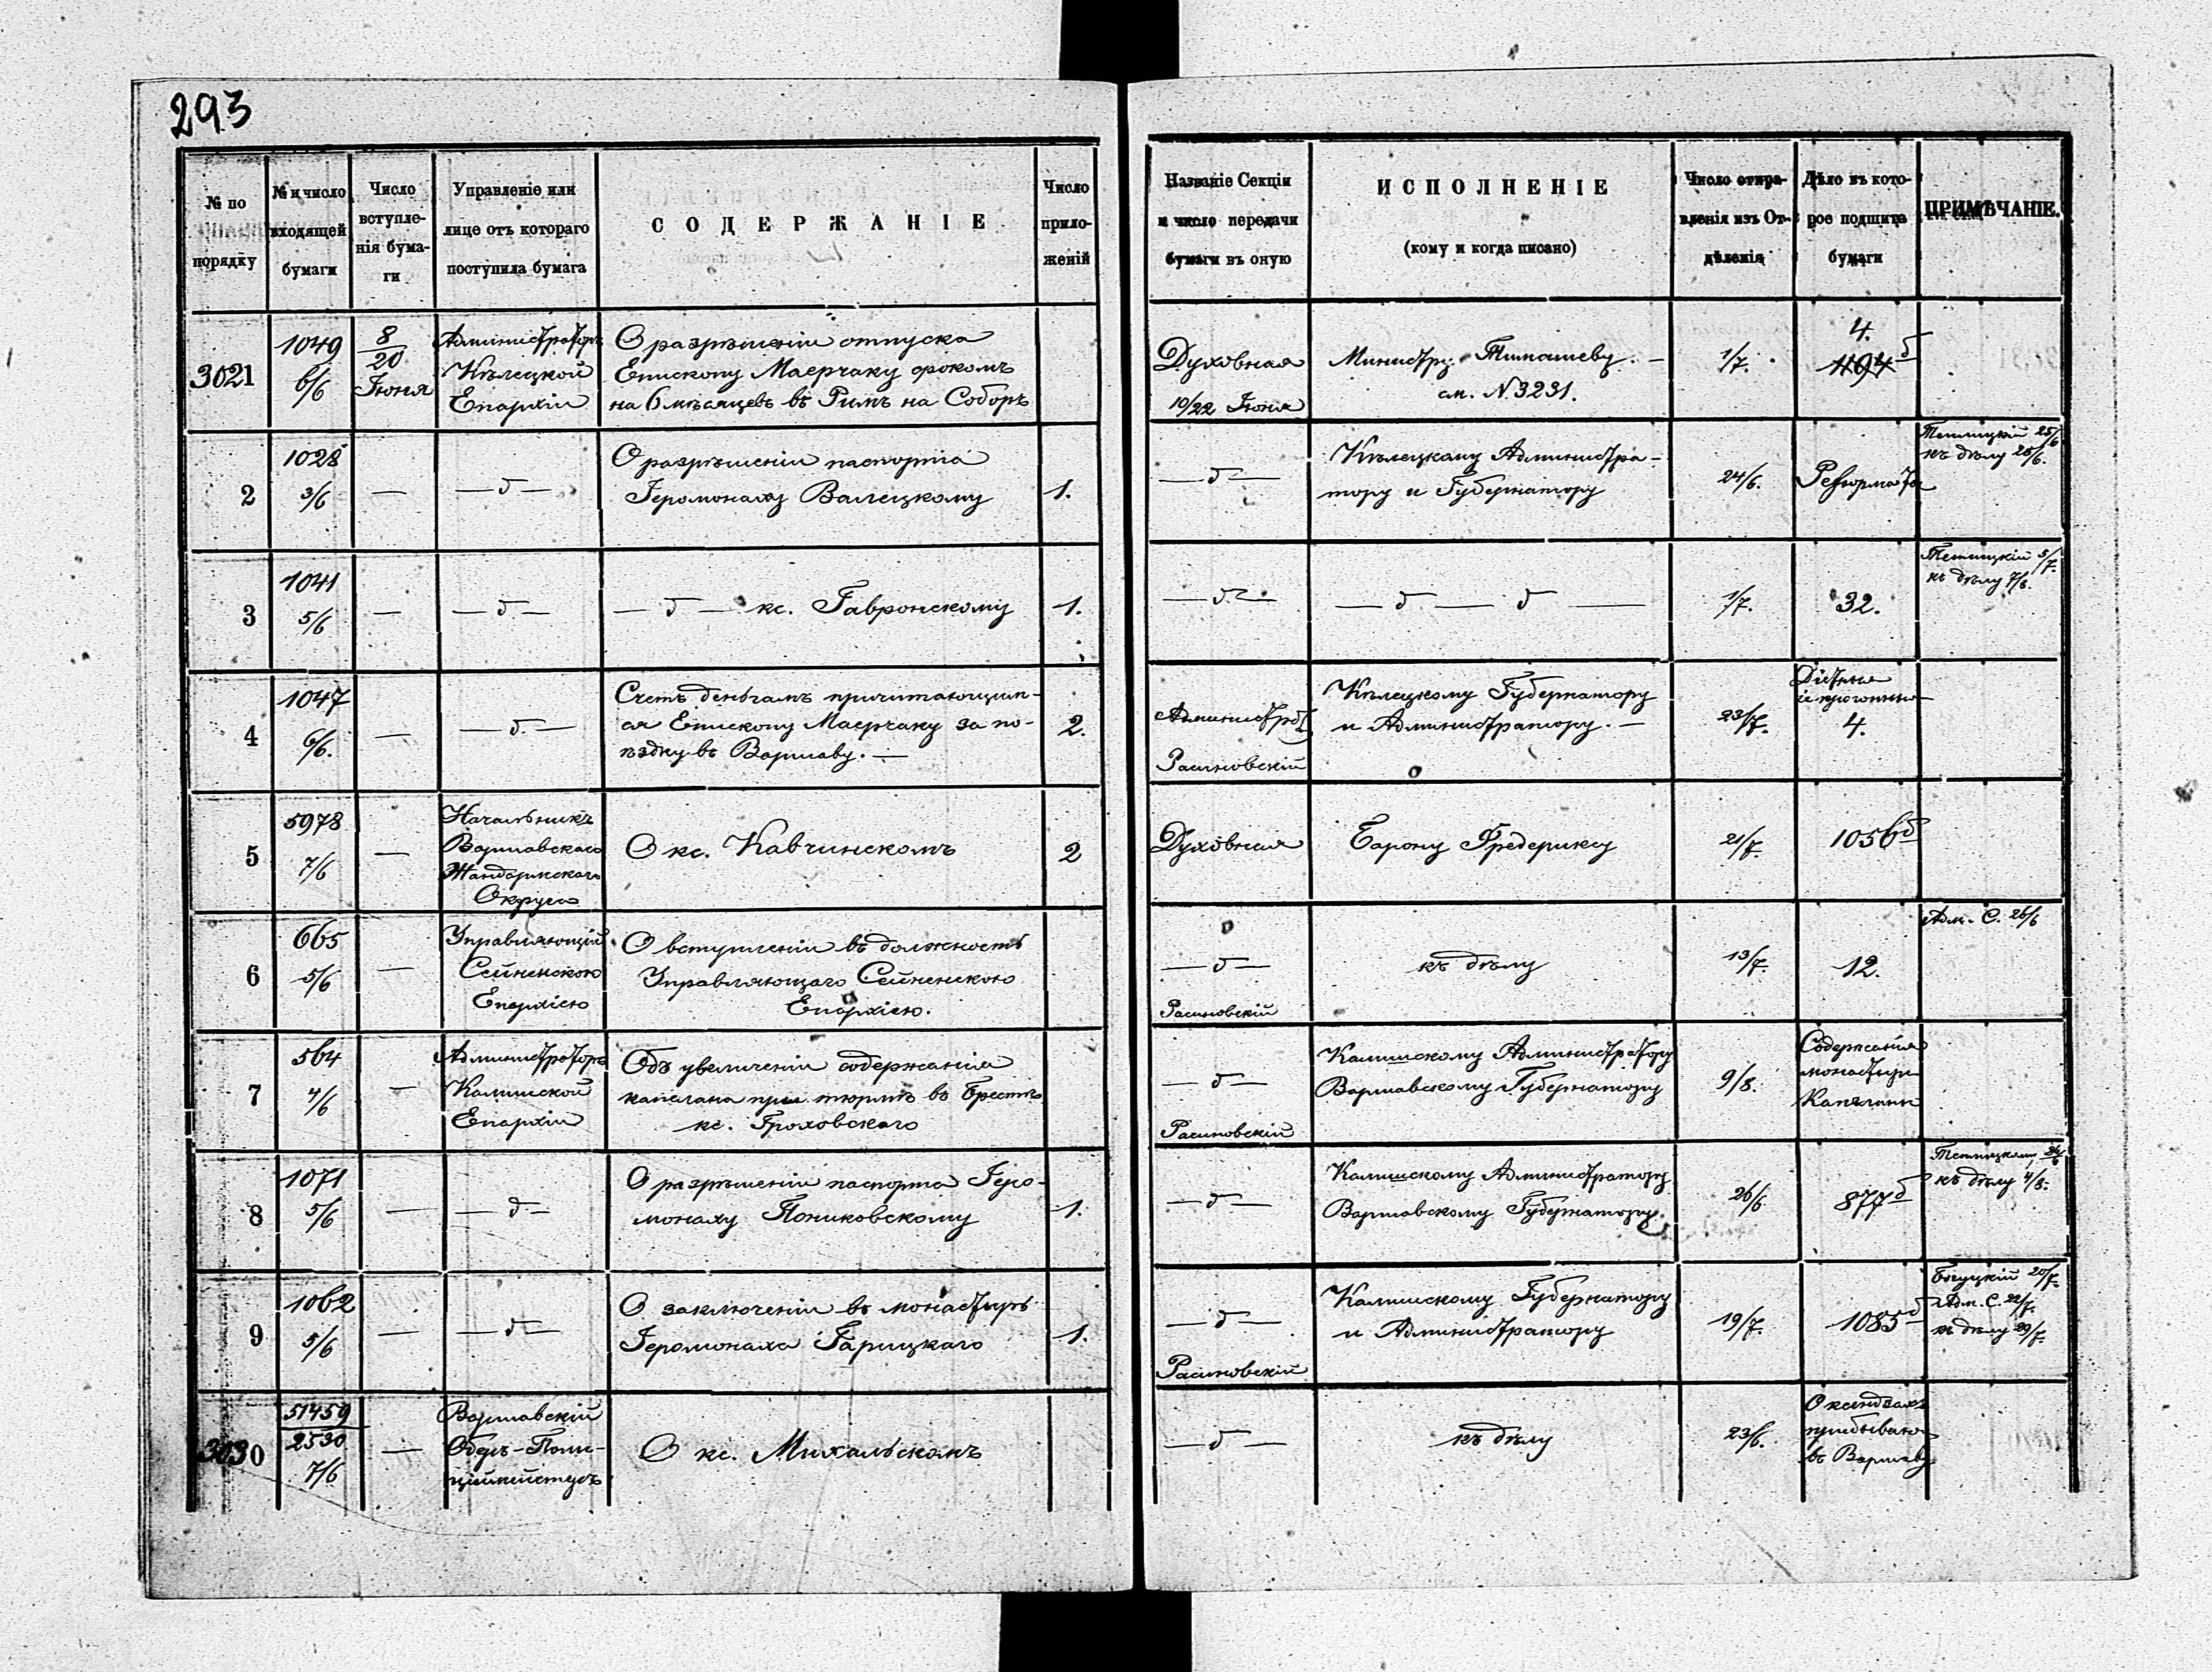 293
№ по порядку
№ и число входящей бумаги
Число вступленія бумаги
Управленіе или лице отъ котораго поступила бумага
СОДЕРЖАНІЕ
Число приложеній
Названіе Секціи и число передачи бумаги въ оную
ИСПОЛНЕНІЕ
(кому и когда писано)
Число отправленія изъ Отдѣленія
Дѣло въ которое подшита бумаги
ПРИМѢЧАНІЕ.
3021
1049
6/6
8/20
Іюня
Администраторъ
Кѣлецкой
Епархіи
О разрѣшеніи отпуска
Епископу Маерчаку срокомъ
на 6 мѣсяцевъ въ Римъ на Соборъ
Духовная
10/22 Іюня
Министру Тимашеву. —
см. N. 3231.
1/7.
4.
1194 б
2
1028
3/6
—
— д —
О разрѣшеніи паспорта
Іеромонаху Валецкому
1.
— д —
Кѣлецкому Администра-
тору и Губернатору
24/6.
Реформаты
25/6
къ дѣлу 28/6.
3
1041
5/6
—
— д —
— д — кс. Гавронскому
1.
— д —
— д — д —
1/7.
32.
5/7.
къ дѣлу 7/8.
4
1047
6/6.
—
— д. —
Счетъ деньгамъ причитающим-
ся Епископу Маерчаку за по-
ѣздку въ Варшаву. —
2.
Администр.
Расиновскій
Кѣлецкому Губернатору
и Администратору. —
23/7.
Діэтныя
и прогонныя
4.
5
5978
7/6
—
Начальникъ
Варшавскаго
Жандармскаго
Округа
О кс. Кавчинскомъ
2
Духовная
Барону Фредериксу
21/7.
1056 б
6
665
5/6
—
Управляющій
Сейненскою
Епархіею
О вступленіи въ должность
Управляющаго Сейненскою
Епархіею.
— д —
Расиновскій
къ дѣлу
13/7.
12.
Адм. С. 26/6
7
564
4/6
—
Администраторъ
Калишской
Епархіи
Объ увеличеніи содержанія
капелана при тюрьмѣ въ Брестѣ
кс. Гроховскаго
— д —
Расиновскій
Калишскому Администратору
Варшавскому Губернатору
9/8.
Содержанія
монастыри
Капеланы
8
1071
5/6
—
— д —
О разрѣшеніи паспорта Іеро-
монаху Пониковскому
1.
— д —
Калишскому Администратору
Варшавскому Губернатору.
26/6
877 б
къ дѣлу 4/8.
9
1062
5/6
—
— д —
О заключеніи въ монастырь
Іеромонаха Гарицкаго
1.
— д —
Расиновскій
Калишскому Губернатору
и Администратору
19/7.
1085 б
20/7.
Адм. С. 22/7.
къ дѣлу 29/7.
3030
51459
2530
7/6
—
Варшавскій
Оберъ-Поли-
ціймейстеръ
О кс. Михальскомъ
— д —
къ дѣлу
23/6.
О ксендзахъ
прибываю-
въ Варшаву